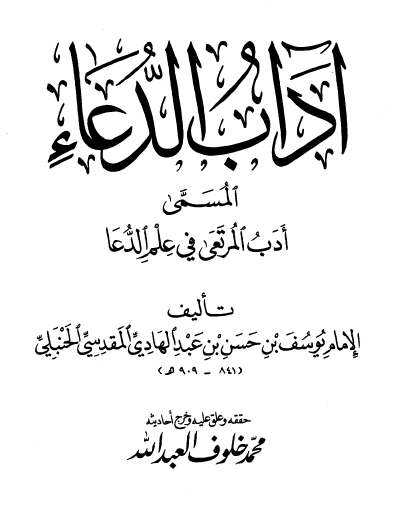 آدَابُ الدُّعَاءِ
المُسَمَّى
أَدَبُ المُرتَعَى فِي عِلْمِ الدُّعَا
تأليف
الإمَام يُوسُفَ بْنِ حَسَنِ بْنِ عَبْدِ الهَادِي المَقدِسِيِّ الحَنْبَلِيِّ
(٨٤١ - ٩٠٩ هـ)
حققه وعلق عليه وخرج أحاديثه
محمد خلوف العبد الله